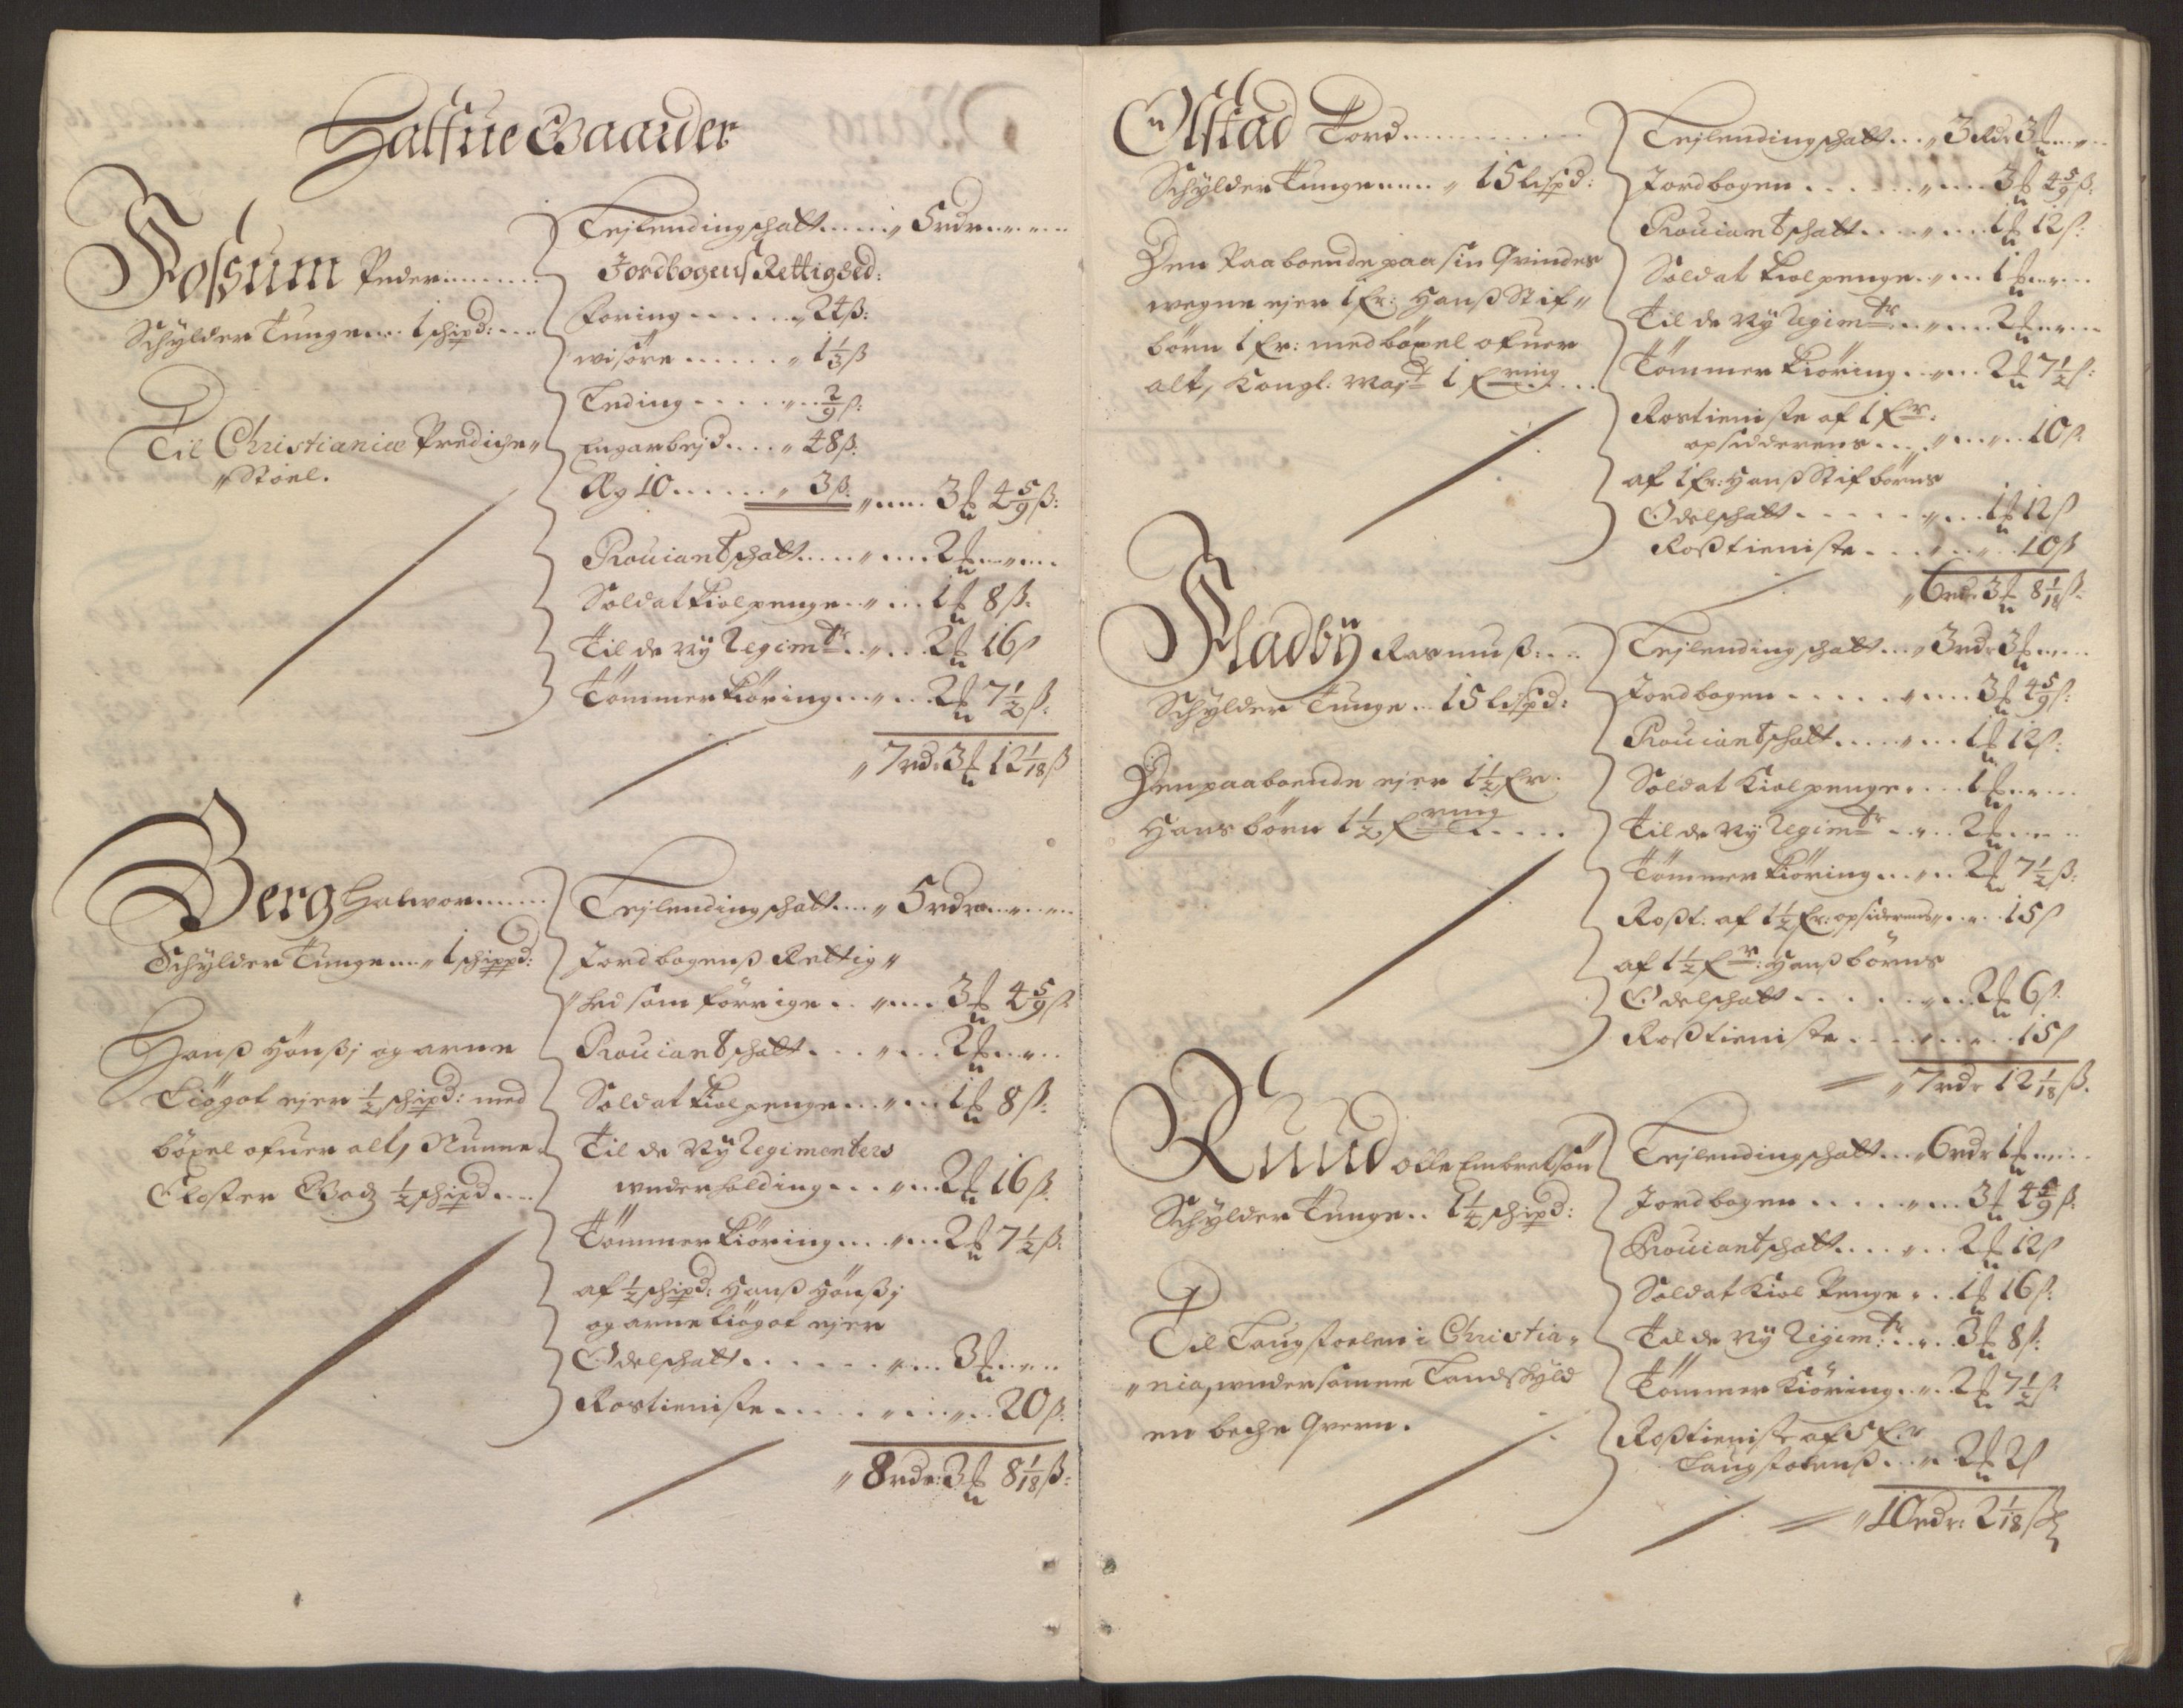 Halfue Gaarder
Fossum Peder
Schylder Tunge 1 schipd:
Til Christianiæ Prediche
Stoel.
Leylending schatt 5 rdr
Jordbogens Rettighed:
Foring 24 ß:
Wisöre 1 1/3 ß
Leding 2/9 ß:
Engarbejd 48 ß:
Æg 10 3 ß. 3 ℔ 4 5/9 ß:
Prouiantschatt 2 ℔
Soldatkiolpenge 1 ℔ 8 ß:
Til de Ny Regimtr 2 ℔ 16 ß
Tömmerkiöring 2 ℔ 7 1/2 ß:
7 rdr 3 ℔ 12 1/18 ß
Berg Halwor
Schylder Tunge 1 schippd:
Hanss Hönssj og arne
Kiögot ejer 1/2 schipd: med
böxel ofuer alt, Nunne
Kloster Godz 1/2 schipd
Leylending schatt 5 rdr
Jordbogenss Rettig
hed som förrige 3 ℔ 4 5/9 ß
Prouiantschatt 2 ℔
Soldatkiolpenge 1 ℔ 8 ß:
Til de Ny Regimenters
underholding 2 ℔ 16 ß:
Tömmerkiöring 2 ℔ 7 1/2 ß:
af 1/2 schipd: Hanss Hönssj
og arne kiögot ejer
Odelschatt 3 ℔
Rostieniste 20 ß:
8 rdr: 3 ℔ 8 1/18 ß:
Olstad Tord
Schylder Tunge 15 lispd:
Den Paaboende paa sin Qvindes
wegne ejer 1 fr: Hanss Stif
börn 1 fr: med böxel ofuer
alt, Kongl. Majt 1 fring
Leylending schatt 3 Rdr 3 ℔
Jordbogen 3 ℔ 4 5/9 ß:
Prouiantschatt 1 ℔ 12 ß:
Soldat kiolpenge 1 ℔
Til de Ny Regimtr 2 ℔
Tömmer kiöring 2 ℔ 7 1/2 ß:
Rostieniste af 1 fr:
opsidderens 10 ß
af 1 fr: Hanss Stifbörns
Odelschatt 1 ℔ 12 ß
Rosstieniste 10 ß
6 rdr 3 ℔ 8 1/18 ß:
Fladby Rasmuss:
Schylder Tunge 15 lispd:
Den paaboende ejer 1 1/2 fr.
Hans börn 1 1/2 fring
Leylending schatt 3 rdr 3 ℔
Jordbogen 3 ℔ 4 5/9 ß:
Prouiantschatt 1 ℔ 12 ß:
Soldat Kiolpenge 1 ℔
Til de Ny Regimtr 2 ℔
Tömmer kiöring 2 ℔ 7 1/2 ß:
Rosst: af 1 1/2 fr: opsiderens 15 ß
af 1 1/2 fr: Hanss börns
Odelschatt 2 ℔ 6 ß:
Rosstieniste 15 ß
7 rdr 12 1/18 ß.
Ruud olle Embretsön
Schylder Tunge 1 1/4 schipd:
Til Laugstoelen i Christia
nia, under samme Landskyld
en beche Qvern.
Leylending schatt 6 rdr 1 ℔
Jordbogen 3 ℔ 4 5/9 ß:
Prouiantschatt 2 ℔ 12 ß
Soldat Kiol Penge 1 ℔ 16 ß:
Til de Ny Regimtr 3 ℔ 8 ß:
Tömmer Kiöring 2 ℔ 7 1/2 ß:
Rosstieniste af 5 fr
Laugstolenss 2 ℔ 2 ß
10 rdr: 2 1/18 ß